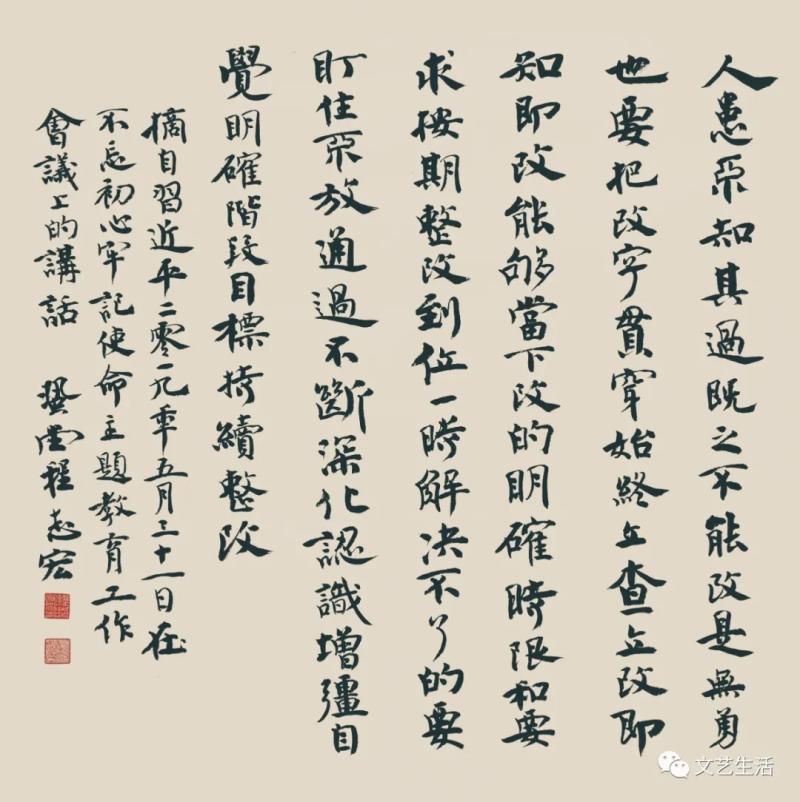 人患不知其過既之不能改是無勇
也要把改字貫穿始終立查立改即
知即改能够當下改的明確時限和要
求按期整改到位一時解決不了的要
盯住不放通過不斷深化認識增彊自
覺明確階段目標持續整改
摘自習近平二零一九年五月三十一日在
不忘初心牢記使命主題教育工作
會議上的講話 堂程志宏
文艺生活